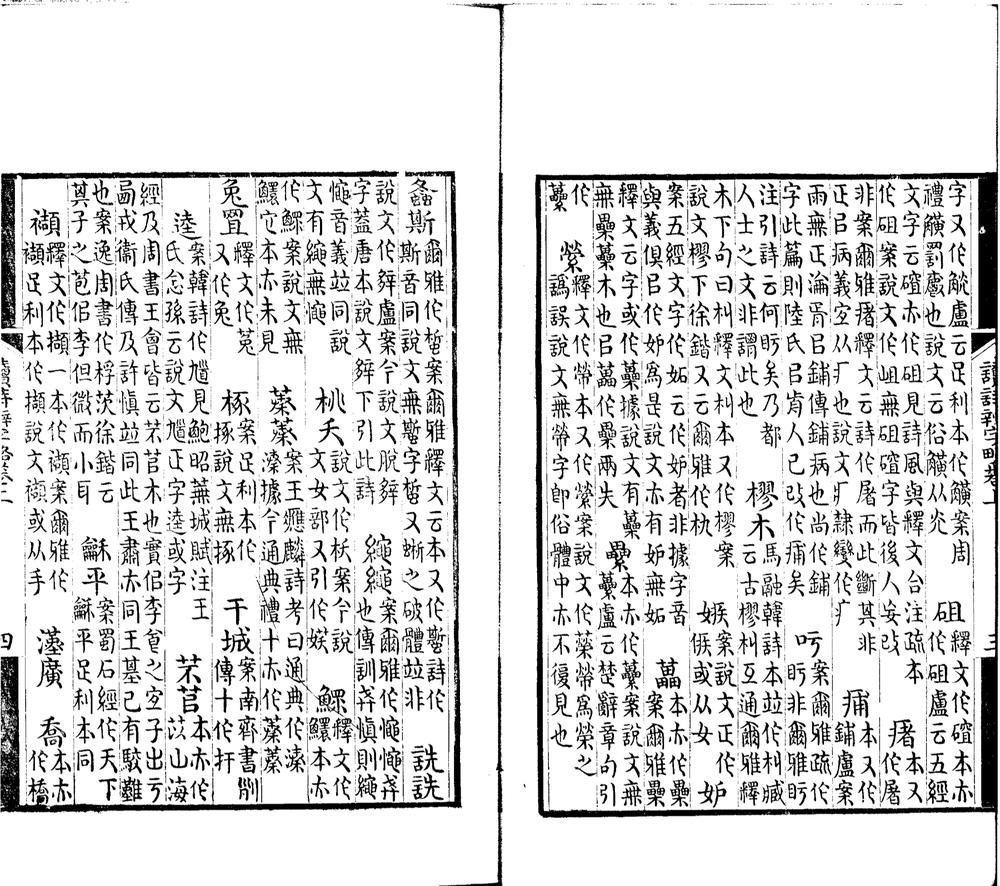 字又作觥盧云足利本作觵案周
禮觵罰䣃也說文云俗觵从光
砠
釋文作碒本亦
作砠盧云五經
文字云碒亦作砠見詩風與釋文台注疏本
作砠案說文作岨無砠碒字皆後人妄改
瘏
本又
作屠
非案爾雅瘏釋文云詩作屠而此斷其非
正㠯病義宐从疒也說文疒隷變作疒
痡
本又作
鋪盧案
雨無正淪胥㠯鋪傳鋪病也尚作鋪
字此篇則陸氏㠯肯人已改作痡矣
吁
案爾雅疏作
盱非爾雅盱
注引詩云何盱矣乃都
人士之文非謂此也
樛木
馬融韓詩本並作朻臧
云古樛朻互通爾雅釋
木下句曰朻釋文朻本又作樛案
說文樛下徐鍇又云爾雅作朹
案說文正作
或从女
妒
案五經文字作妬云作妒者非據字音
與義俱㠯作妒爲是說文亦有妒無妬
藟
本亦作虆
案爾雅櫐
釋文云字或作虆據說文有虆
無櫐虆木也㠯藟作櫐兩失
纍
本亦作虆案說文無
虆盧云楚辭章句引
作
虆
縈
釋文作帶案說文作縈帶爲縈之
譌誤說文無帶字卽俗體中亦不復見也
三
螽斯
爾雅作蜤案爾雅釋文云本又作蟴詩作
斯斯音同說文無蟴字蜤又蜥之破體並非
詵詵
說文作㚞盧案今說文脫㚞
字蓋唐本說文㚞下引此詩
繩繩
案爾雅作憴憴弆
也傳訓弆愼則繩
憴音義竝同說
文有繩無憴
桃夭
說文作枖案今說
文女部又引作媄
鰥
釋文作
鱞本亦
作鰥案說文無
鱞它本亦未見
蓁蓁
案王應麟詩考曰通典作溱
溱據今通典禮十亦作蓁蓁
兔罝
釋文作菟
又作兔
椓
案足利本作
㧻說文無㧻
干城
案南齊書刑
傳十作扞
逵
案韓詩作馗見鮑昭蕪城賦注王
氏忩孫云說文馗正字逵或字
芣苢
本亦作
苡山海
經及周書王會皆云芣苢木也實侣李食之宐子出亏
西戎衞氏傳及許愼竝同此王肅亦同王基已有駮難
也案逸周書作桴茨徐鍇云
其子之苞侣李但微而小耳
龢平
案蜀石經作天下
龢平足利本同
襭
釋文作擷一本作襭案爾雅作
襭足利本作擷說文襭或从手
漢廣
喬
本亦
作橋
四